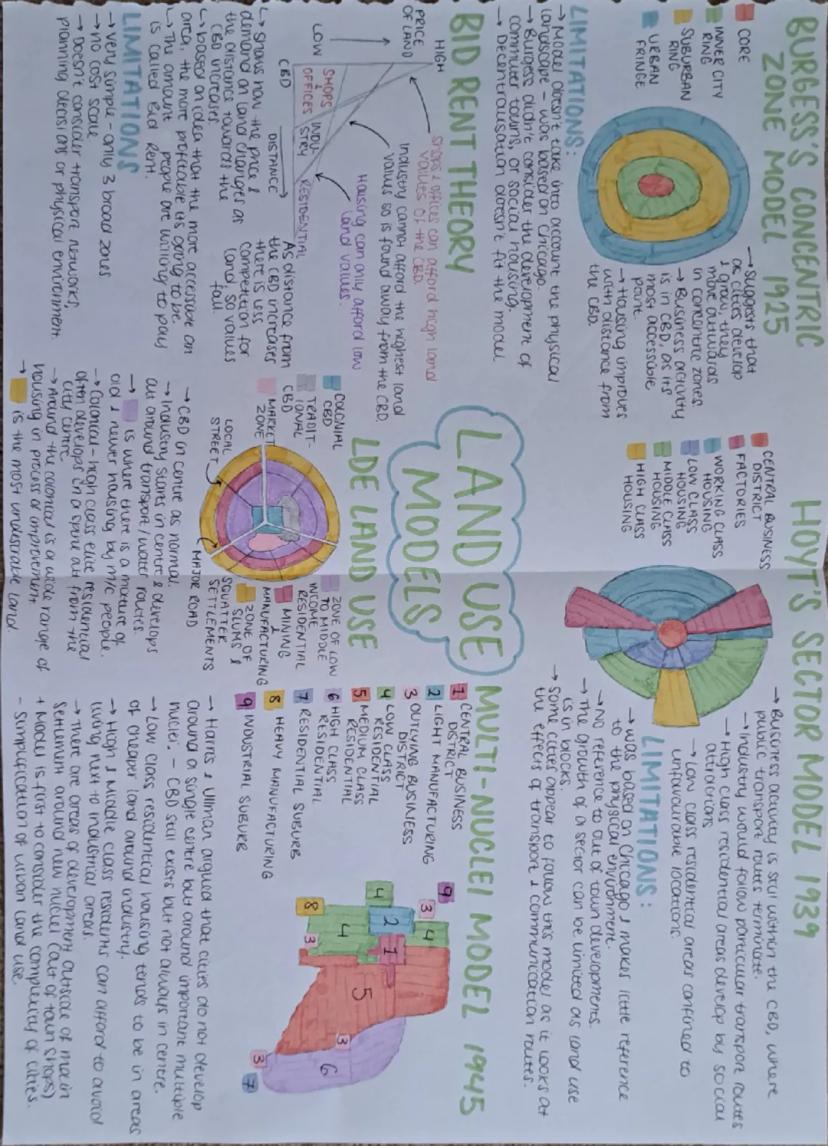 BURGESS'S CONCENTRIC
ZONE MODEL 1925
CORE
INNER CITY
RING
SUBURBAN
RING
URBAN
FRINGE
→ Suggests that
as cities develop
& grow, they
move outwards
in concentric zones
→ Business activity
is in CBD, as its
most accessible
point.
→ Housing improves
with distance from
the CBD.
LIMITATIONS:
→ Model doesn't take into account the physical
landscape - was based on Chicago.
→ Burgess didn't consider the development of
commuter towns, or social housing.
→ Decentralisation doesn't fit the model
BID RENT THEORY
PRICE
OF LAND
HIGH
LOW
SHOPS
&
OFFICES
INDU-
STRY
RESIDENTIAL
CBD
DISTANCE
Shops & offices can afford high land
values of the CBD.
Industry cannot afford the highest land
values so is found away from the CBD.
Housing can only afford low
land values.
As distance from
the CBD increases
there is less
competition for
land, so values
fall
↳ Shows how the price &
demand on land changes as
the distance towards the
CBD increases
↳ based on idea that the more accessible an
area, the more profitable its going to be.
→ The amount people are willing to pay
is called Bid Rent.
LIMITATIONS
→ Very simple - only 3 broad zones
→ no cost scale
→ Doesn't consider transport networks,
planning decisions or physical environment.
LAND USE
MODELS
HOYT'S SECTOR MODEL 1939
CENTRAL BUSINESS
DISTRICT
FACTORIES
WORKING CLASS
HOUSING
LOW CLASS
HOUSING
MIDDLE CLASS
HOUSING
HIGH CLASS
HOUSING
→ Business activity is still within the CBD, where
public transport routes terminate.
→ Industry would follow particular transport routes
→ High class residential areas develop by social
attractions
→ Low class residential areas confined to
unfavourable locations.
LIMITATIONS:
→ was based on Chicago & makes little reference
to the physical environment.
→ No reference to out of town developments.
→ The growth of a sector can be limited as land use
is in blocks.
→ Some cities appear to follow this model as it looks at
the effects of transport & communication routes.
LDE LAND USE
COLONIAL
CBD
TRADIT-
IONAL
CBD
MARKET
ZONE
LOCAL
STREET
ZONE OF LOW
TO MIDDLE
INCOME
RESIDENTIAL
MINING
&
MANUFACTURING
ZONE OF
SLUMS &
SQUATTER
SETTLEMENTS
MAJOR ROAD
→ CBD in centre as normal.
→ Industry starts in centre & develops
out around transport/water routes.
→ is where there is a mixture of
old & newer housing by m/c people.
→ Colonial - high class elite residential
often develops in a spine out from the
city centre.
→ Around the colonial is a wide range of
housing in process of improvement
→ is the most undesirable land.
MULTI-NUCLEI MODEL 1945
1 CENTRAL BUSINESS
DISTRICT
2 LIGHT MANUFACTURING
3 OUTLYING BUSINESS
DISTRICT
4 LOW CLASS
RESIDENTIAL
5 MEDIUM CLASS
RESIDENTIAL
6 HIGH CLASS
RESIDENTIAL
7 RESIDENTIAL SUBURB
8 HEAVY MANUFACTURING
9 INDUSTRIAL SUBURB
9
3
4
4
2
1
8
4
3
5
3
6
3
7
→ Harris & Ullman argued that cities do not develop
around a single centre but around important multiple
nuclei. - CBD still exists but not always in centre.
→ Low class residential housing tends to be in areas
of cheaper land around industry.
→ High & middle class residents can afford to avoid
living next to industrial areas.
→ There are areas of development outside of main
settlement around new nuclei (out of town shops)
+ Model is first to consider the complexity of cities.
- Simplification of urban land use.